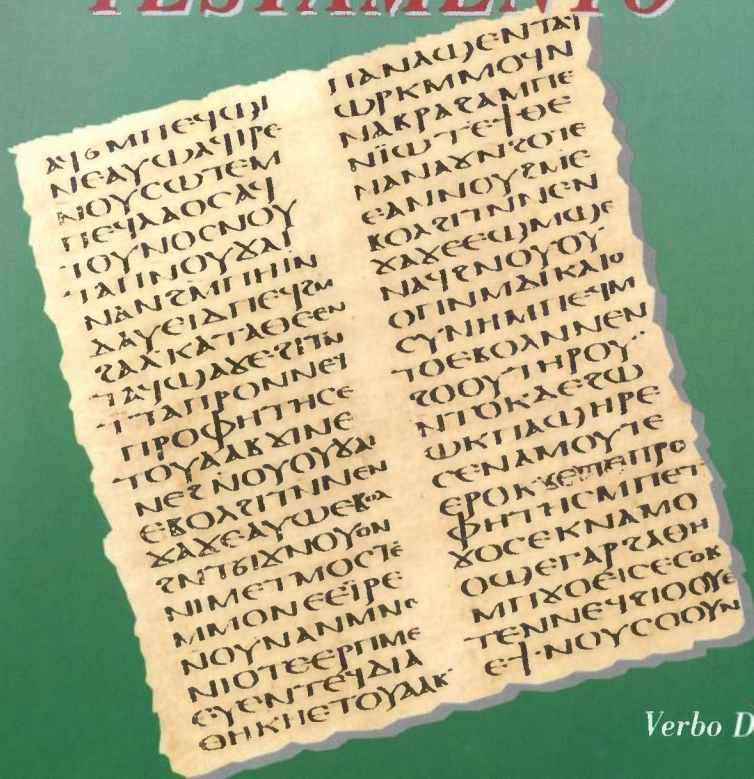 TESTAMENTO
ⲁϥϭⲙⲡⲉϥϣⲓ
ⲛⲉⲁⲩⲱⲁϥⲓⲣⲉ
ⲛⲟⲩⲥⲱⲧⲉⲙ
ⲡⲉϥⲗⲁⲟⲥⲁϥ
ⲧⲟⲩⲛⲟⲥⲛⲟⲩ
ⲧⲁⲡⲛⲟⲩϫⲁⲓ
ⲛⲁⲛϩⲙⲡⲏⲓⲛ
ⲇⲁⲩⲉⲓⲇⲡⲉϥϩⲙ
ϩⲁⲗⲕⲁⲧⲁⲑⲉⲉⲛ
ⲧⲁϥϣⲁϫⲉϩⲓⲧⲛ
ⲧⲧⲁⲡⲣⲟⲛⲛⲉϥ
ⲡⲣⲟⲫⲏⲧⲏⲥⲉ
ⲧⲟⲩⲁⲁⲃϫⲓⲛⲉ
ⲛⲉϩⲛⲟⲩⲟⲩϫⲁⲓ
ⲉⲃⲟⲗϩⲓⲧⲛⲛⲉⲛ
ϫⲁϫⲉⲁⲩⲱⲉⲃⲟⲗ
ϩⲛⲧϭⲓϫⲛⲟⲩⲟⲛ
ⲛⲓⲙⲉⲧⲙⲟⲥⲧⲉ
ⲙⲙⲟⲛⲉⲉⲓⲣⲉ
ⲛⲟⲩⲛⲁⲛⲙⲛⲛ
ⲛⲓⲟⲧⲉⲉⲣⲡⲙⲉ
ⲉⲩⲉⲛⲧⲉϥⲇⲓⲁ
ⲑⲏⲕⲏⲉⲧⲟⲩⲁⲁⲃ
ⲡⲁⲛⲁϣⲉⲛⲧⲁϥ
ⲱⲣⲕⲙⲙⲟϥⲛ
ⲛⲁⲃⲣⲁϩⲁⲙⲡⲉ
ⲛⲓⲱⲧⲉϯⲑⲉ
ⲛⲁⲛⲁϫⲛϩⲟⲧⲉ
ⲉⲁⲛⲛⲟⲩϩⲙⲉ
ⲃⲟⲗϩⲓⲧⲛⲛⲉⲛ
ϫⲁϫⲉⲉϣⲙϣⲉ
ⲛⲁϥϩⲛⲟⲩⲟⲩ
ⲟⲡⲙⲛⲙⲁⲓⲕⲁⲓⲟ
ⲥⲩⲛⲏⲙⲡⲉϥⲙ
ⲧⲟⲉⲃⲟⲗⲛⲛⲉⲛ
ϩⲟⲟⲩⲧⲏⲣⲟⲩ
ⲛⲧⲟⲕⲇⲉϩⲱ
ⲱⲕⲡⲁϣⲏⲣⲉ
ⲥⲉⲛⲁⲙⲟⲩⲧⲉ
ⲉⲣⲟⲕϫⲉⲡⲉⲡⲣⲟ
ⲫⲏⲧⲏⲥⲙⲡⲉⲧ
ϫⲟⲥⲉⲕⲛⲁⲙⲟ
ⲟϣⲉⲅⲁⲣϩⲁⲑⲏ
ⲙⲡϫⲟⲉⲓⲥⲉⲥⲟⲃ
ⲧⲉⲛⲛⲉϥϩⲓⲟⲟⲩⲉ
ⲉϯⲛⲟⲩⲥⲟⲟⲩⲛ
Verbo D